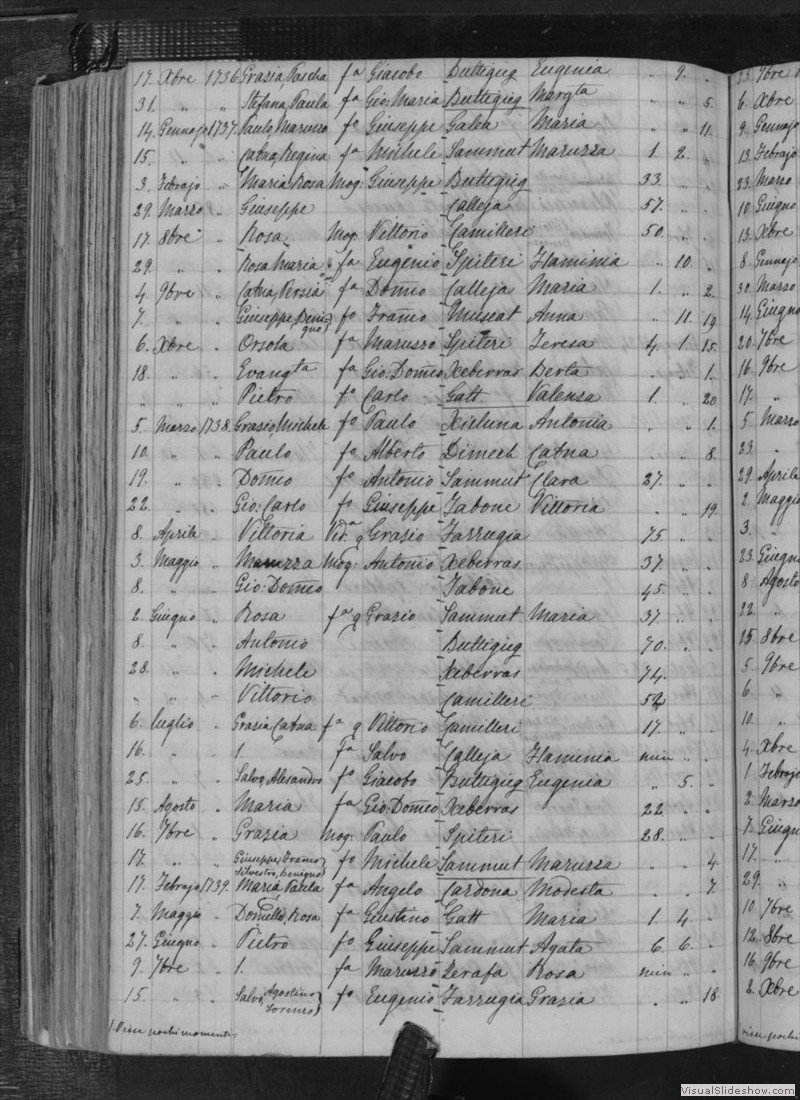 17. Xbre 1736 Grazia, Pascha fa Giacobo Buttigieg Eugenia " 9. "
31. " " Stefana, Paula fa Gio: Maria Buttigieg Margta " " 5.
14. Gennajo 1737. Paulo, Maruzzo fo Giuseppe Galea Maria " " 11.
15. " " Catna, Regina fa Michele Sammut Maruzza 1. 2. "
3. Febrajo " Maria Rosa Mog: Giuseppe Buttigieg 33. " "
29. Marzo " Giuseppe Calleja 57. " "
17. 8bre " Rosa Mog: Vittorio Camilleri 50. " "
29. " " Rosa Maria fa Eugenio Spiteri Flaminia " 10. "
4. 9bre " Catna, Persia fa Domco Calleja Maria 1. " 2.
7. " " Giuseppe, Benigno fo Franco Muscat Anna " 11. 19
6. Xbre " Orsola fa Maruzzo Spiteri Teresa 4. 1. 15.
18. " " Evangta fa Gio: Domco Xeberras Berta " " 1.
" " " Pietro fo Carlo Gatt Valenza 1. " 20
5. Marzo 1738. Grazio, Michele fo Paulo Xicluna Antonia " " 1.
10. " " Paulo fo Alberto Dimech Catna " " 8.
19. " " Domco fo Antonio Sammut Clara 27. " "
22. " " Gio: Carlo fo Giuseppe Zabone Vittoria " " 19.
8. Aprile " Vittoria Vid.a q Grazio Farrugia 75 " "
3. Maggio " Maruzza Mog: Antonio Xeberras 37. " "
8. " " Gio: Domco Zabone 45. " "
2. Giugno " Rosa fa q Grazio Sammut Maria 37. " "
8. " " Antonio Buttigieg 70. " "
28. " " Michele Xeberras 74. " "
" " " Vittorio Camilleri " "
6. Luglio " Grazia, Catna fa q Vittorio Camilleri 17. " "
16. " " 1. fa Salvo Calleja Flaminia min " "
25. " " Salvo, Alesandro fo Giacobo Buttigieg Eugenia " 5. "
15. Agosto " Maria fa Gio: Domco Xeberras 22. " "
16. 7bre " Grazia Mog: Paulo Spiteri 28. " "
17. " " Giuseppe, Franco Silvestro, Benigno fo Michele Sammut Maruzza " " 4.
17. Febrajo 1739. Maria, Paula fa Angelo Cardona Modesta " " 7
7. Maggio " Domcella, Rosa fa Giustino Gatt Maria 1. 4. "
27. Giugno " Pietro fo Giuseppe Sammut Agata 6. 6. "
9. 7bre " 1. fa Maruzzo Zerafa Rosa min " "
15. " " Salvo, Agostino Lorenzo fo Eugenio Farrugia Grazia " " 18.
1. Visse pochi momenti.
23. 9bre
6. Xbre
9. Gennajo
13. Febrajo
23. Marzo
10. Giugno
13. Xbre
8. Gennajo
30. Marzo
14. Giugno
20. 7bre
16. 9bre
17. "
5. Marzo
23. "
29. Aprile
2. Maggio
3. "
23. Giugno
8. Agosto
22. "
15 8bre
5. 9bre
6 "
10. "
4. Xbre
1 Febrajo
2. Marzo
7. Giugno
17. "
29. "
10. 7bre
12. 8bre
16. 9bre
2. Xbre
1 Visse pochi
VisualSlideshow.com